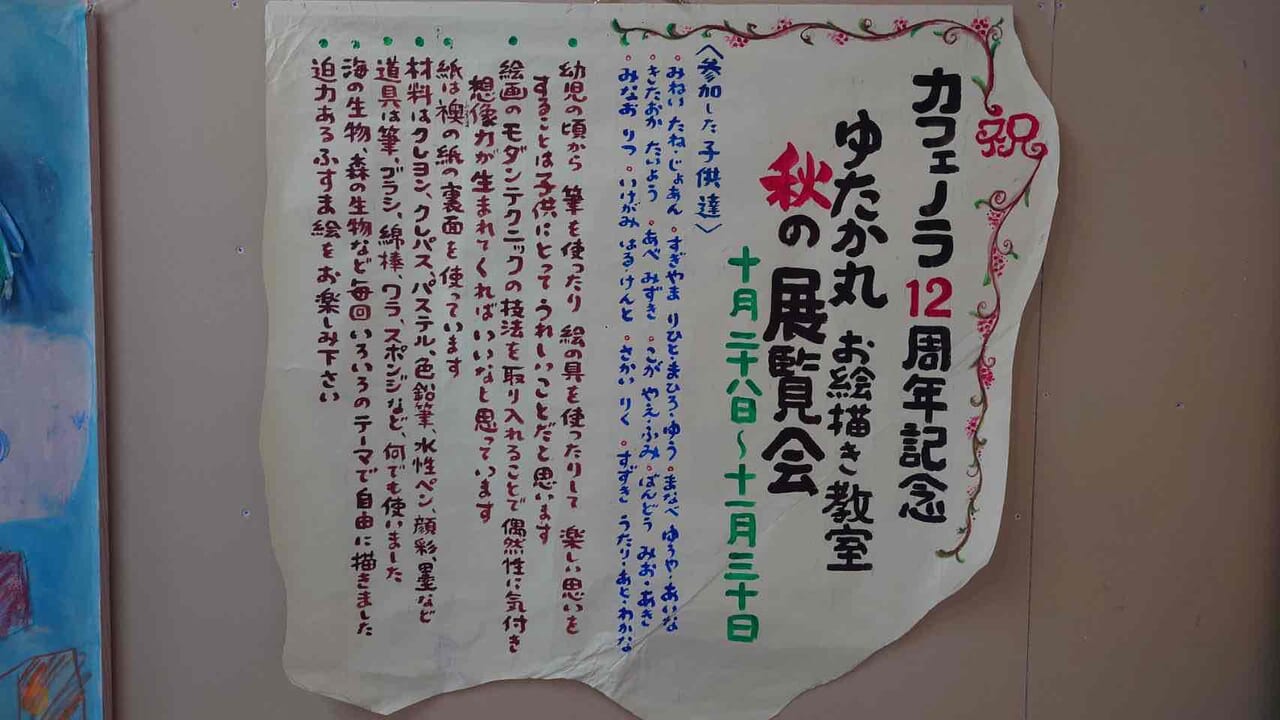 祝
カフェノラ12周年記念
ゆたか丸 お絵描き教室
秋の展覧会
十月二十八日〜十一月三十日
〈参加した子供達〉
◦みねい たね・じょあん ◦すぎやま りひと・まひろ・ゆう ◦まなべ ゆうや・あいな
◦きたおか たいよう ◦あべ みずき ◦こが やえ・ふみ ◦ばんどう みお・あき
◦みなお りつ ◦いけがみ はる・けんと ◦さかい りく ◦すずき うたり・あと・わかな
●幼児の頃から 筆を使ったり 絵の具を使ったりして 楽しい思いを
することは子供にとって うれしいことだと思います
●絵画のモダンテクニックの技法を取り入れることで偶然性に気付き
想像力が生まれてくればいいなと思っています
●紙は襖の紙の裏面を使っています
●材料はクレヨン、クレパス、パステル、色鉛筆、水性ペン、顔彩、墨など
●道具は筆、ブラシ、綿棒、ワラ、スポンジなど、何でも使いました
●海の生物、森の生物など毎回いろいろのテーマで自由に描きました
●迫力あるふすま絵をお楽しみ下さい